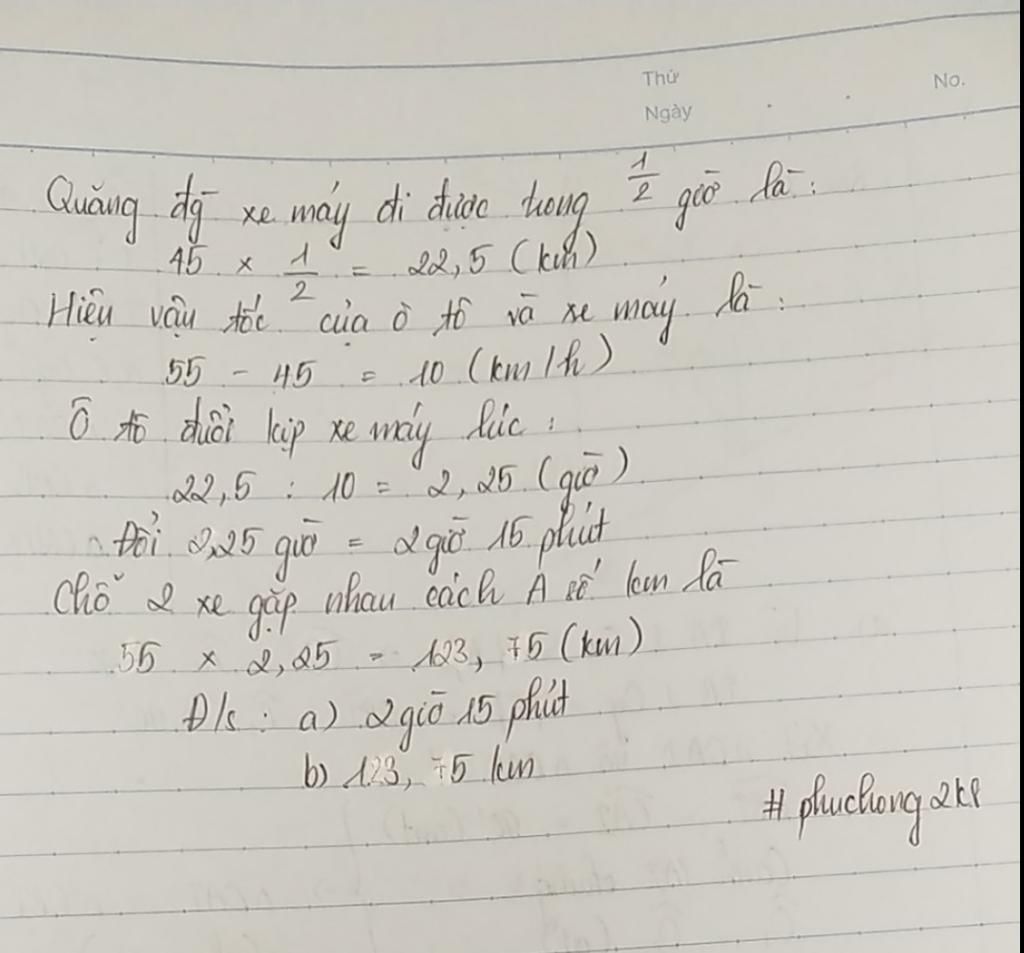 Thứ
No.
Ngày
Quãng đg xe máy đi được trong 1/2 giờ là:
45 × 1/2 = 22,5 (km)
Hiệu vận tốc của ô tô và xe máy là:
55 - 45 = 10 (km/h)
Ô tô đuổi kịp xe máy lúc:
22,5 : 10 = 2,25 (giờ)
Đổi 2,25 giờ = 2 giờ 15 phút
Chỗ 2 xe gặp nhau cách A số km là
55 × 2,25 = 123,75 (km)
Đ/s: a) 2 giờ 15 phút
b) 123,75 km